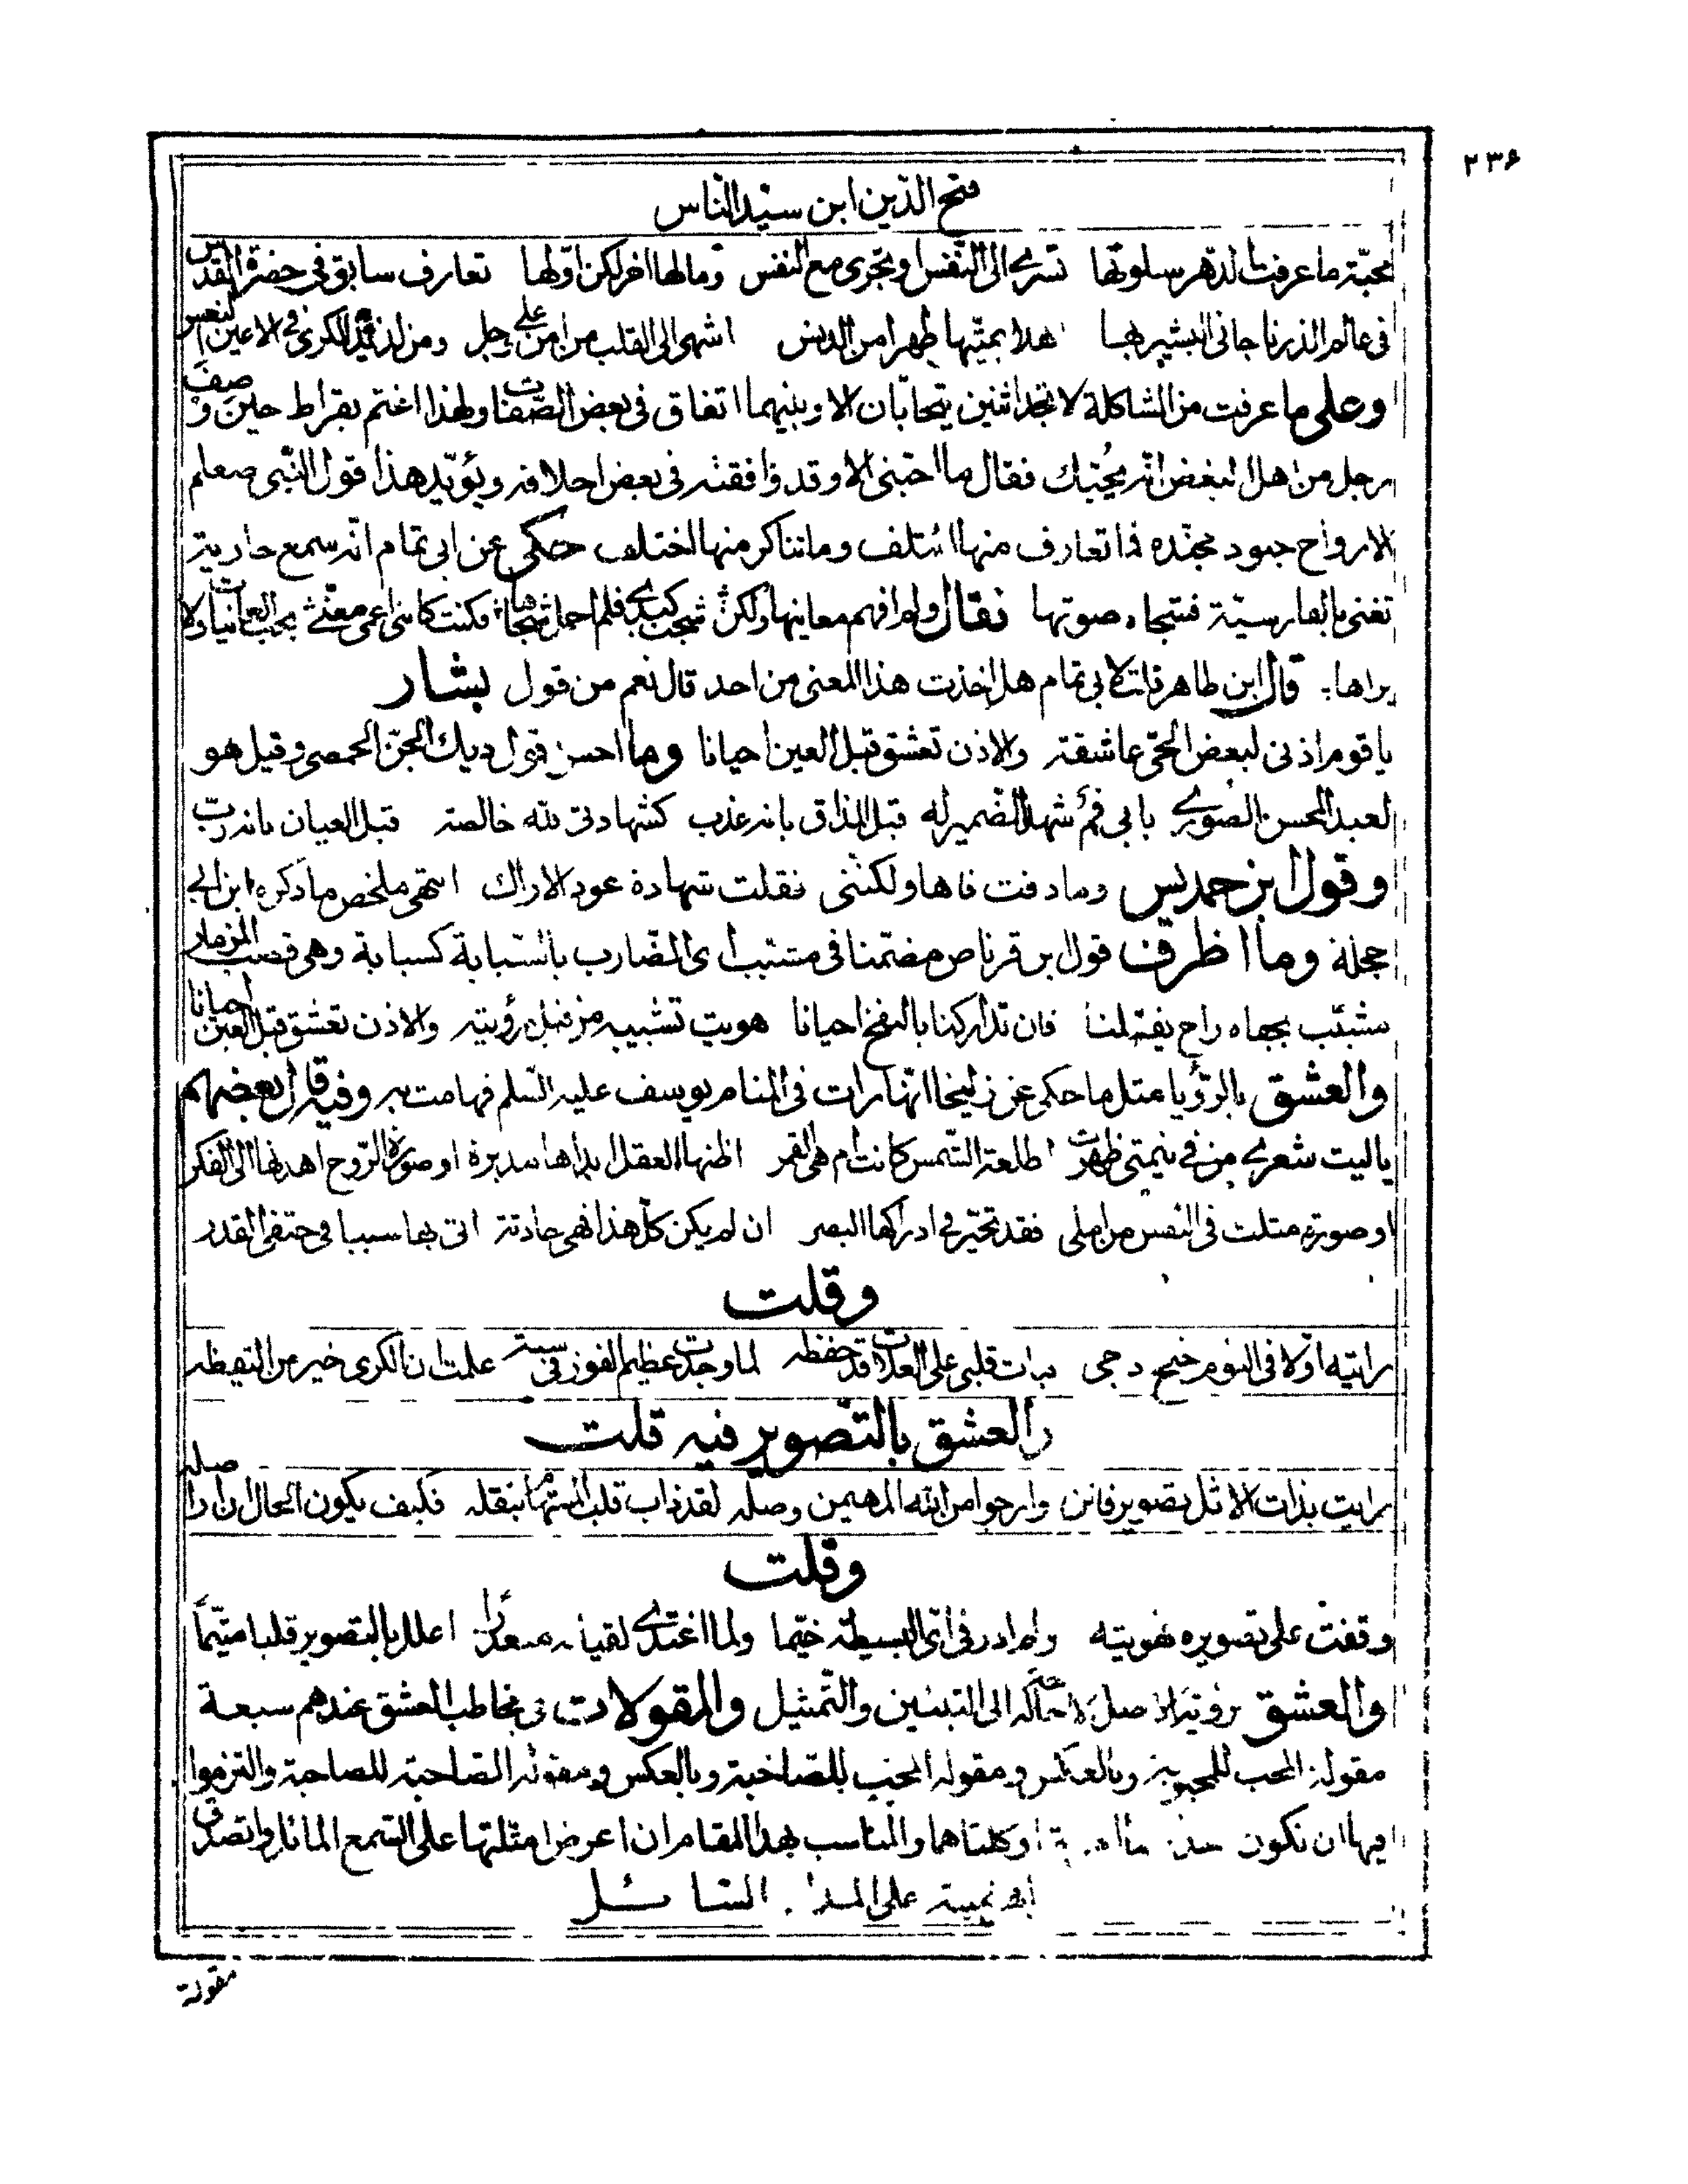 ٢٣٦
فتح الدّين ابن سيّد الناس
محبّة ما عرفت الدهر سلوتها تسرى الى النّفس او تجرى مع النفس وما لها اخر لكن اوّلها تعارف سابق فى حضرة القدس
فى عالم الذر ناجانى البشير بها اهلا بها طهرا من الدنس اشهى الى القلب من امن على وجل ومن لذيذ الكرى فى الاعين النعس
وعلى ما عرفت من المشاكلة لا تجد اثنين يتحابّان الا وبينهما اتفاق فى بعض الصّفات ولهذا اغتم بقراط حين وصف
رجل من اهل النغض انّه يحبّك فقال ما احبّنى الا وقد وافقته فى بعض اخلاقه ويؤيّد هذا قول النّبى صعلم
الارواح جنود مجنّده فما تعارف منها ائتلف وما تناكر منها اختلف حكى عن ابى تمام انّه سمع جارية
تغنى بالفارسيّة فشجاه صوتها فقال ولم افهم معانيها ولكن شجت كبدى فلم اجهل شجاها فكنت كانى اعمى معنّى بحب الغانيات ولا
يراها قال ابن طاهر قلت لابى تمام هل اخذت هذا المعنى من احد قال نعم من قول بشار
يا قوم اذنى لبعض الحىّ عاشقة والاذن تعشق قبل العين احيانا وما احسن قول ديك الجنّ الحمصى وقيل هو
لعبد المحسن الصّورى بابى فم شهد الضمير له قبل المذاق بانه عذب كشهادتى لله خالصة قبل العيان بانه ربّ
وقول ابن حمديس وما ذقت فاها ولكننى نقلت شهادة عود الاراك انتهى ملخص ما ذكره ابن ابى
حجلة وما اظرف قول بن قرناص مضمّنا فى مشبب اى الضّارب بالشبابة كسبابة وهى قصب المزمار
مشبّب بجفاه راح يقتلنا فان تداركنا بالنفخ احيانا هويت تشبيبه من قبل رؤيته والاذن تعشق قبل العين احيانا
والعشق بالرّؤيا مثل ما حكى عن زليخا انّها رات فى المنام يوسف عليه السّلم فهامت به وفيه قال بعضهم
يا ليت شعرى من فى نيمتى ظهرت اطلعة الشّمس كانت ام هى القمر اظنها العقل ابداها تدبيره او صورة الرّوح اهدتها الى الفكر
او صورة مثلت فى النفس من املى فقد تحيّر فى ادراكها البصر ان لم يكن كلّ هذا فهى حادثة اتى بها سببا فى حتفى القدر
وقلت
رايته اوّلا فى النوم جنح دجى فبات قلبى على العلات قد حفظه لما وجدت عظيم الفوز فى سنة علمت ان الكرى خير من اليقظه
والعشق بالتّصوير فيه قلت
رايت بذات الاثل تصوير فاتن وارجو امن الله المهيمن وصله لقد ذاب قلب المستهام بنقله فكيف يكون الحال ان ارا صله
وقلت
وقفت على تصويره فهويته ولم ادر فى اىّ البسيطة خيّما ولما اغتدى لقيانه متعذرا اعلل بالتصوير قلبا متيّما
والعشق برؤية الاصل لا حاجة له الى التبيين والتّمثيل والمقولات فى تخاطب العشق عندهم سبعة
مقولة المحب للمحبوبة وبالعكس ومقولة المحب للصّاحبة وبالعكس ومقولة الصّاحبة للصاحبة والتزموا
فيها ان تكون او كلتاهما والمناسب بهذا المقام ان اعرض امثلتها على السّمع المائل واتصدّق
على السّائل
مقولة